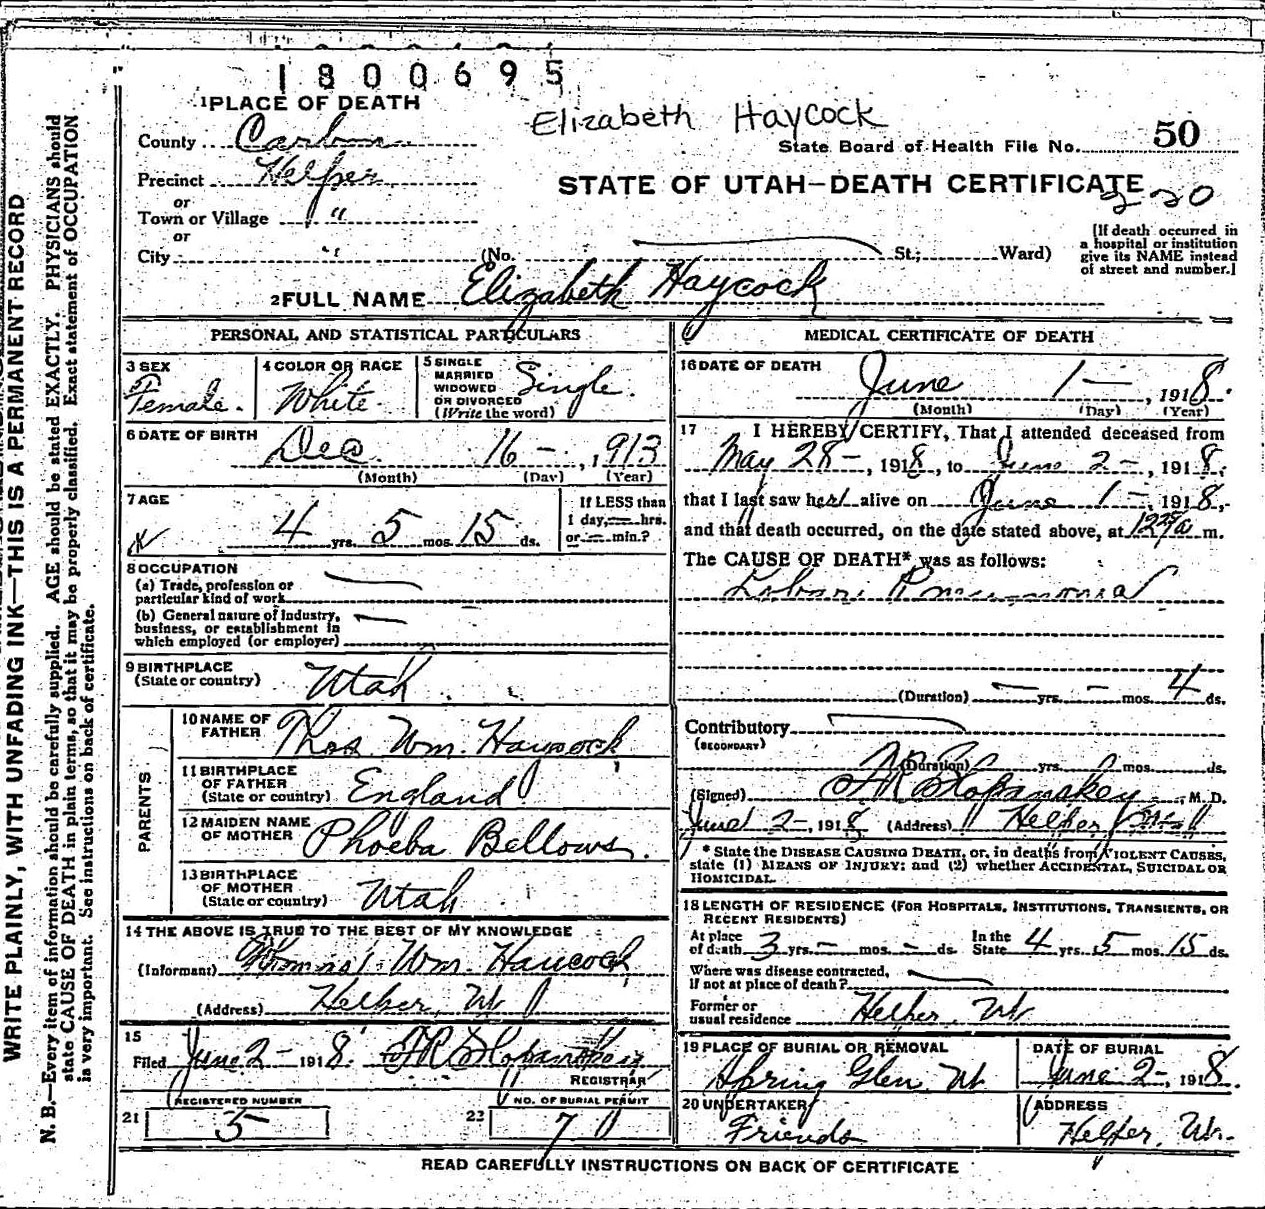 1800695
Elizabeth Haycock
1 PLACE OF DEATH
County Carbon
State Board of Health File No. 50
Precinct Helper
STATE OF UTAH—DEATH CERTIFICATE
220
or
Town or Village "
or
City "
(No. St.; Ward)
[If death occurred in
a hospital or institution
give its NAME instead
of street and number.]
2 FULL NAME Elizabeth Haycock
PERSONAL AND STATISTICAL PARTICULARS
3 SEX
Female.
4 COLOR OR RACE
White.
5 SINGLE
MARRIED
WIDOWED
OR DIVORCED
(Write the word)
Single.
6 DATE OF BIRTH
Dec. 16 —, 1913
(Month) (Day) (Year)
7 AGE
4 yrs. 5 mos. 15 ds.
If LESS than
1 day, — hrs.
or — min.?
8 OCCUPATION
(a) Trade, profession or
particular kind of work
(b) General nature of industry,
business, or establishment in
which employed (or employer)
9 BIRTHPLACE
(State or country) Utah
PARENTS
10 NAME OF
FATHER Thos. Wm. Haycock
11 BIRTHPLACE
OF FATHER
(State or country) England
12 MAIDEN NAME
OF MOTHER Phoeba Bellows.
13 BIRTHPLACE
OF MOTHER
(State or country) Utah
14 THE ABOVE IS TRUE TO THE BEST OF MY KNOWLEDGE
(Informant) Thomas Wm. Haycock
(Address) Helper, Ut
15
Filed June 2 — 1918.
REGISTRAR
REGISTERED NUMBER
21 5
NO. OF BURIAL PERMIT
22 7
MEDICAL CERTIFICATE OF DEATH
16 DATE OF DEATH
June 1 —, 1918.
(Month) (Day) (Year)
17 I HEREBY CERTIFY, That I attended deceased from
May 28 —, 1918, to June 2 —, 1918,
that I last saw her alive on June 1 — 1918,
and that death occurred, on the date stated above, at 12 25 a m.
The CAUSE OF DEATH* was as follows:
Lobar Pneumonia
(Duration) — yrs. — mos. 4 ds.
Contributory
(SECONDARY)
(Duration) yrs. mos. ds.
(Signed) M. D.
June 2 —, 1918 (Address) Helper
* State the DISEASE CAUSING DEATH, or, in deaths from VIOLENT CAUSES,
state (1) MEANS OF INJURY; and (2) whether ACCIDENTAL, SUICIDAL OR
HOMICIDAL.
18 LENGTH OF RESIDENCE (FOR HOSPITALS, INSTITUTIONS, TRANSIENTS, OR
RECENT RESIDENTS)
At place
of death 3 yrs. — mos. — ds.
In the
State 4 yrs. 5 mos. 15 ds.
Where was disease contracted,
if not at place of death?
Former or
usual residence Helper, Ut
19 PLACE OF BURIAL OR REMOVAL
Spring Glen Ut
DATE OF BURIAL
June 2 —, 1918.
20 UNDERTAKER
Friends
ADDRESS
Helper, Ut.
READ CAREFULLY INSTRUCTIONS ON BACK OF CERTIFICATE
WRITE PLAINLY, WITH UNFADING INK—THIS IS A PERMANENT RECORD
N. B.—Every item of information should be carefully supplied. AGE should be stated EXACTLY. PHYSICIANS should
state CAUSE OF DEATH in plain terms, so that it may be properly classified. Exact statement of OCCUPATION
is very important. See instructions on back of certificate.